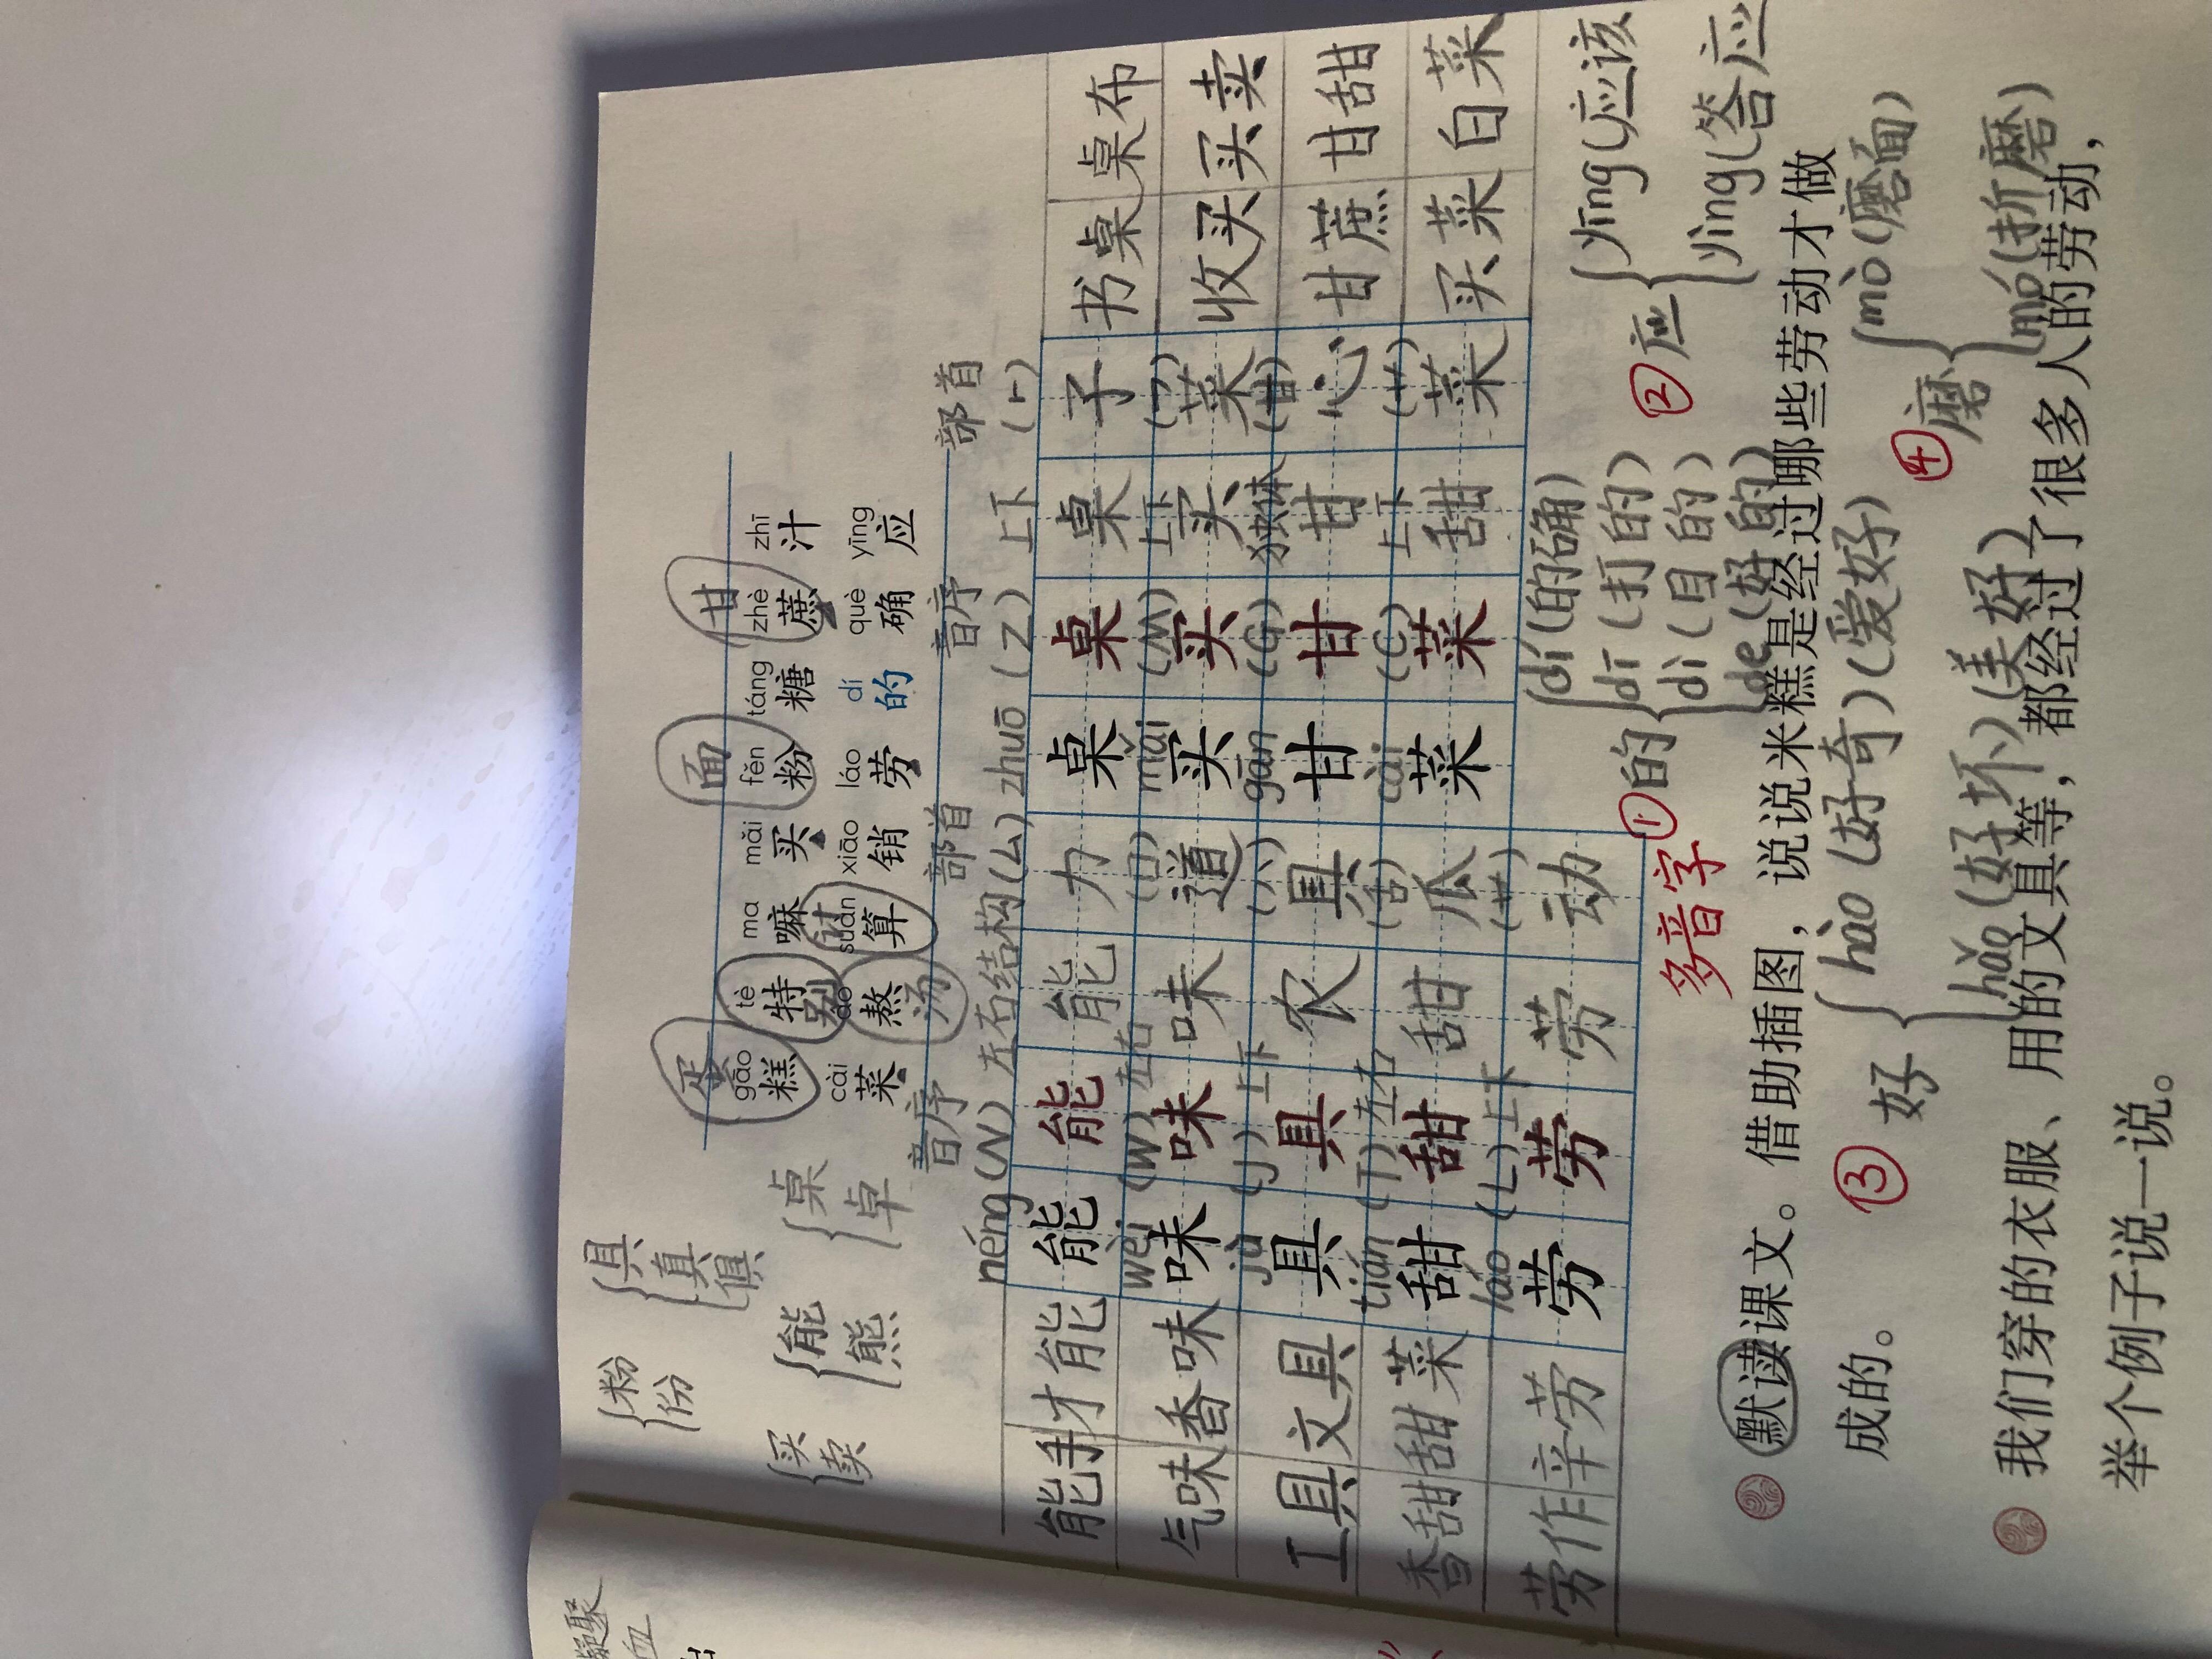 凝聚
血
粉
份
具
真
俱
买
卖
能
熊
桌
卓
蛋 面 甘
gāo tè ma mǎi fěn táng zhè zhī
糕 特 嘛 买 粉 糖 蔗 汁
别
cài áo suàn xiāo láo dí què yīng
菜 熬 算 销 劳 的 确 应
汤
音序 部首 音序 部首
néng (N) 左右结构 (厶) zhuō (Z) 上下 (⺊)
能手 才能 能 能 能力 桌 桌 桌子 书桌 桌布
wèi (W) 左右 (口) mǎi (M) 上下 (乛)
气味 香味 味 味 味道 买 买 买菜 收买 买卖
jù (J) 上下 (八) gān (G) 独体 (甘)
工具 文具 具 具 农具 甘 甘 甘心 甘蔗 甘甜
tián (T) 左右 (舌) cài (C) 上下 (艹)
香甜 甜菜 甜 甜 甜瓜 菜 菜 甜菜 买菜 白菜
láo (L) 上下 (艹)
劳作 辛劳 劳 劳 劳动
多音字 ① 的
dí (的确)
dī (打的)
dì (目的)
de (好的)
② 应
yīng (应该
yìng (答应
默读课文。借助插图，说说米糕是经过哪些劳动才做
成的。
③ 好
hào (好奇) (爱好)
hǎo (好坏) (美好)
④ 磨
mò (磨面)
mó (折磨)
我们穿的衣服、用的文具等，都经过了很多人的劳动，
举个例子说一说。